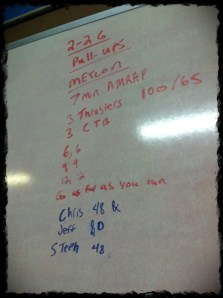 2-26
Pull-ups
METCON
7 min AMRAP
3 Thrusters 100/65
3 CTB
6,6
9 9
12 12
Go as far as you can
Chris 48 Rx
Jeff 80
Steph 48